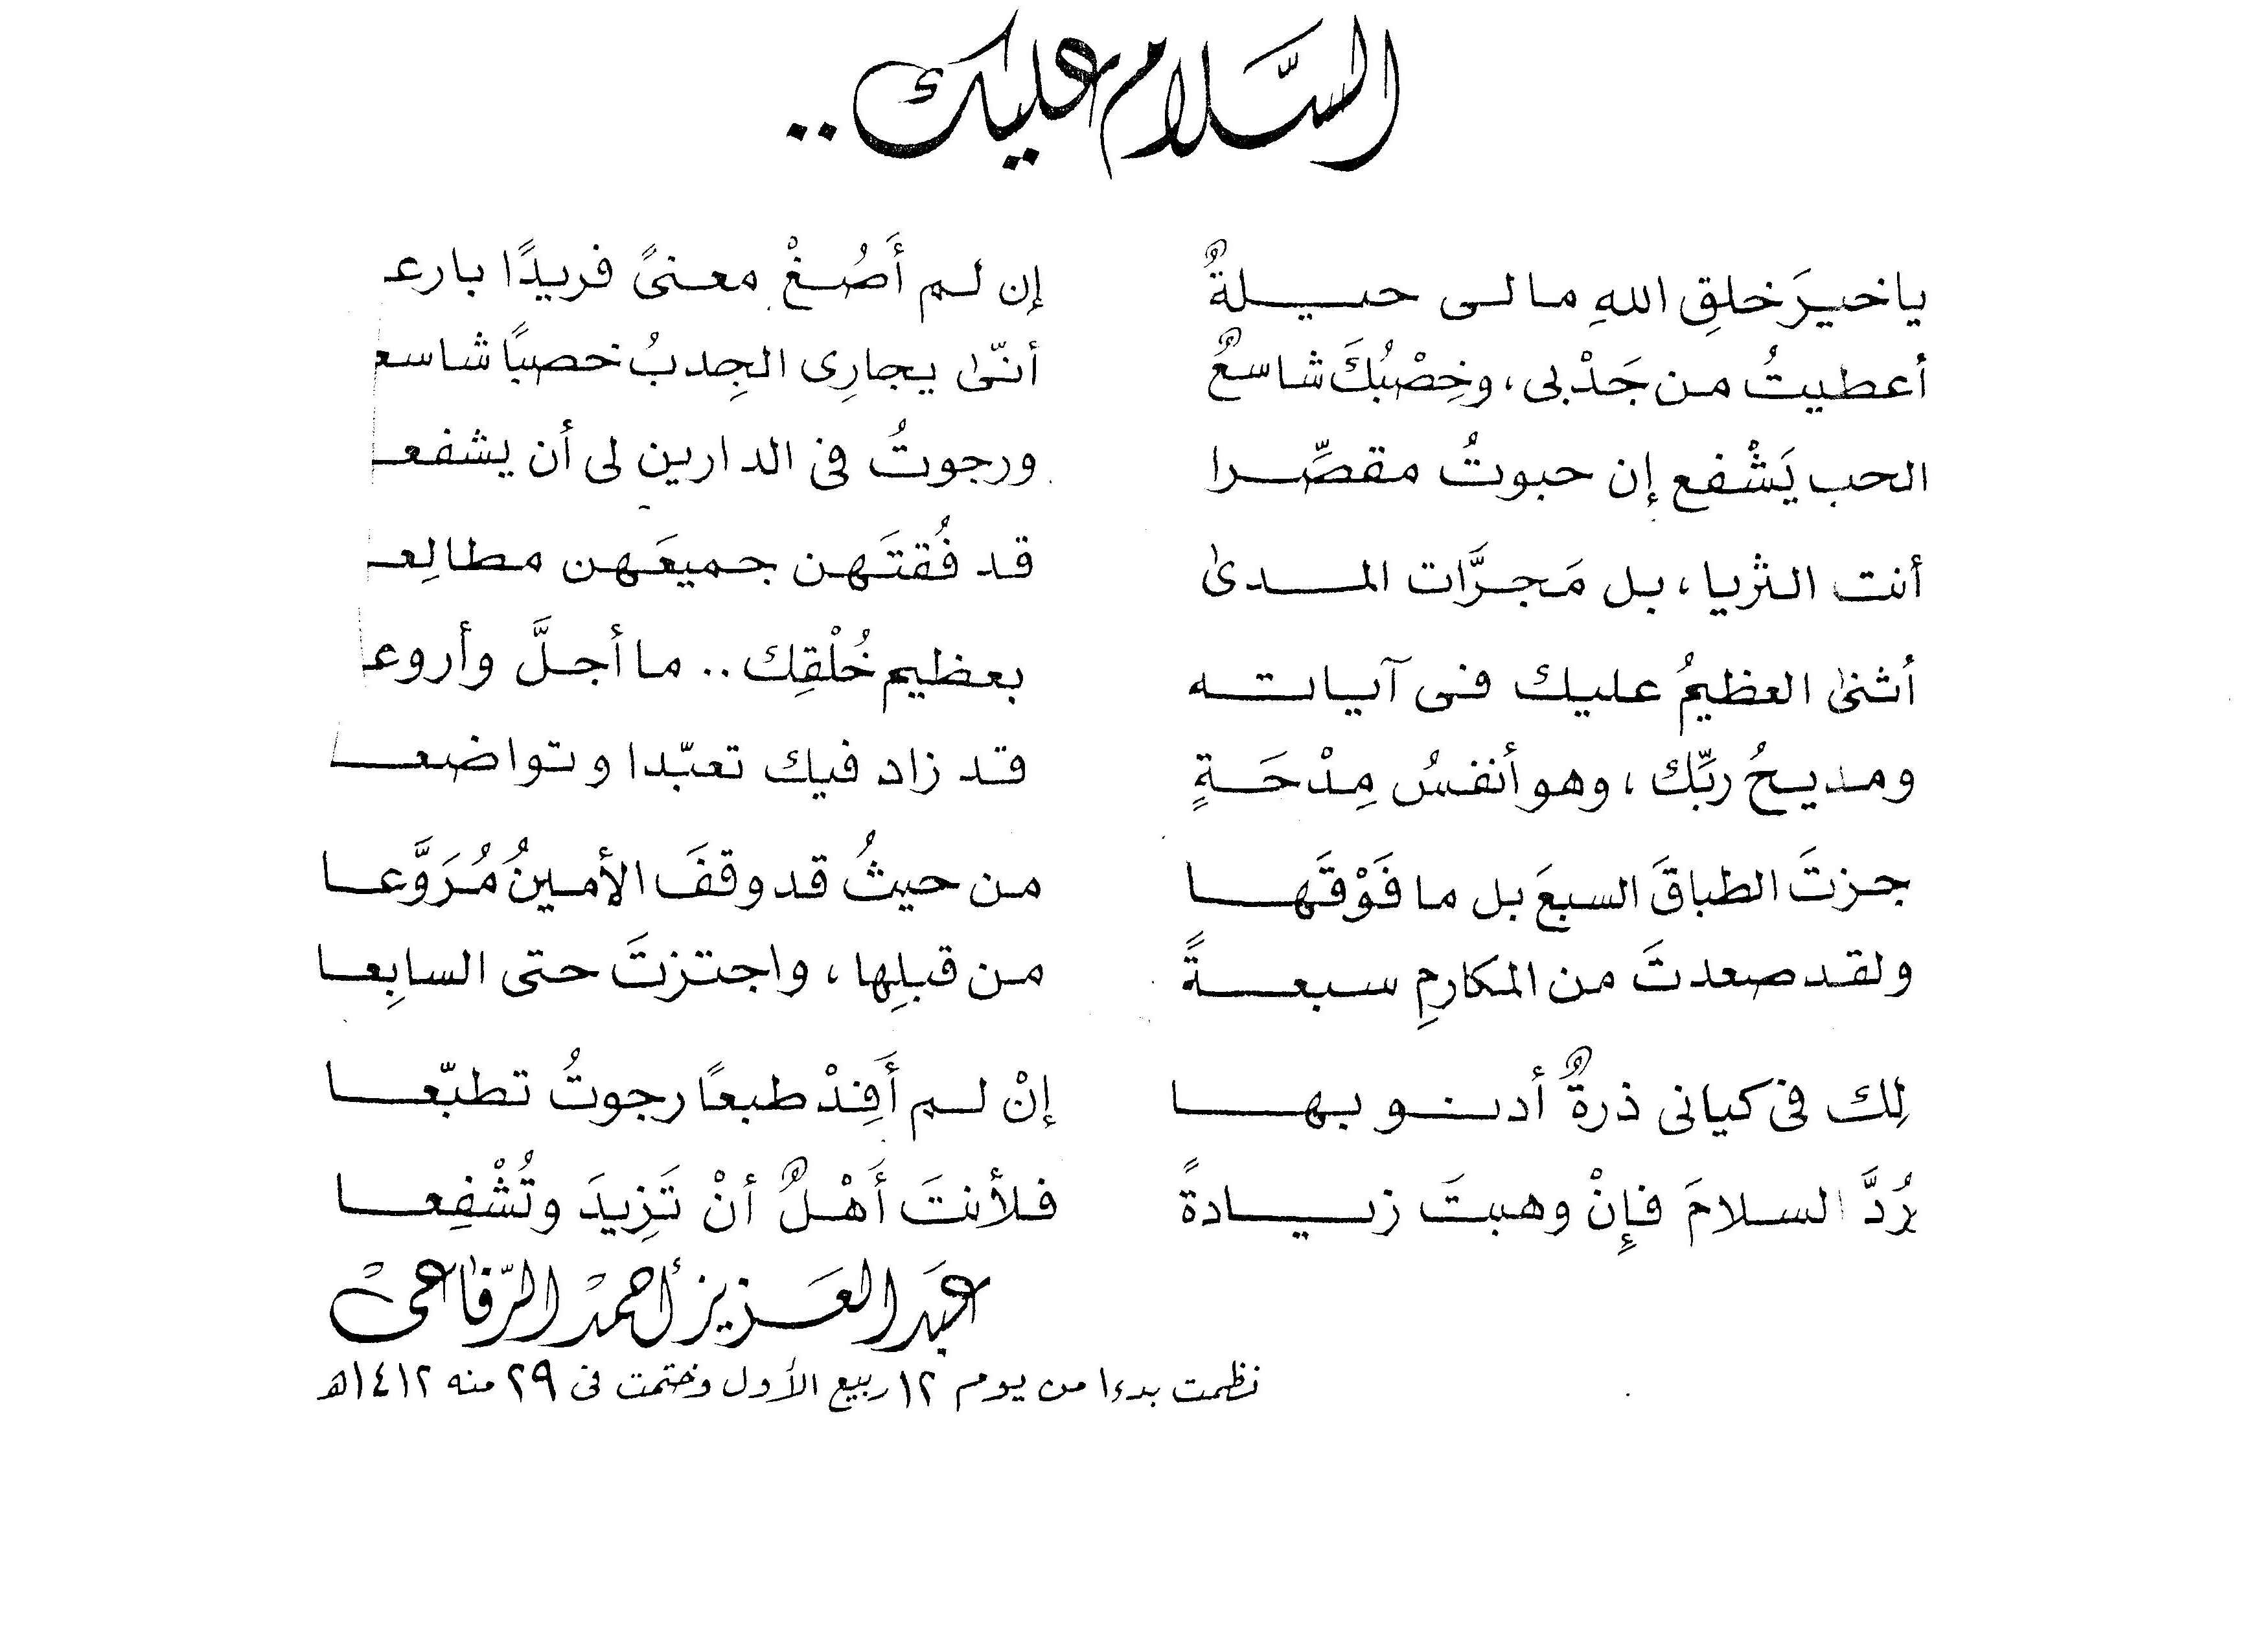 السَّلام عليك ..
ياخيرَ خلقِ اللهِ مالى حيلةٌ إن لم أَصُغْ معنىً فريدًا بارعـ
أعطيتُ من جَدْبى، وخِصْبُكَ شاسعٌ أنّىٰ يجارِى الجِدبُ خصبًا شاسعـ
الحب يَشْفع إن حبوتُ مقصِّرا ورجوتُ فى الدارين لى أن يشفعـ
أنت الثريا، بل مَجرَّات المدىٰ قد فُقتَهن جميعَهن مطالِعـ
أثنىٰ العظيمُ عليك فى آياته بعظيم خُلْقِك .. ما أجلَّ وأروعـ
ومديحُ ربِّك، وهو أنفسُ مِدْحَةٍ قد زاد فيك تعبّدا وتواضعا
جزتَ الطباقَ السبعَ بل ما فَوْقَها من حيثُ قد وقفَ الأمينُ مُرَوَّعا
ولقد صعدتَ من المكارمِ سبعةً من قبلِها، واجتزتَ حتى السابِعا
لِك فى كيانى ذرةٌ أدنو بها إنْ لم أَفِدْ طبعًا رجوتُ تطبّعا
رُدَّ السلامَ فإِنْ وهبتَ زيادةً فلأنتَ أَهْلٌ أنْ تَزِيدَ وتُشْفِعا
عبَد العَزيز أحمدْ الرّفاعىْ
نظمت بدءا من يوم ١٢ ربيع الأول وختمت فى ٢٩ منه ١٤١٢هـ